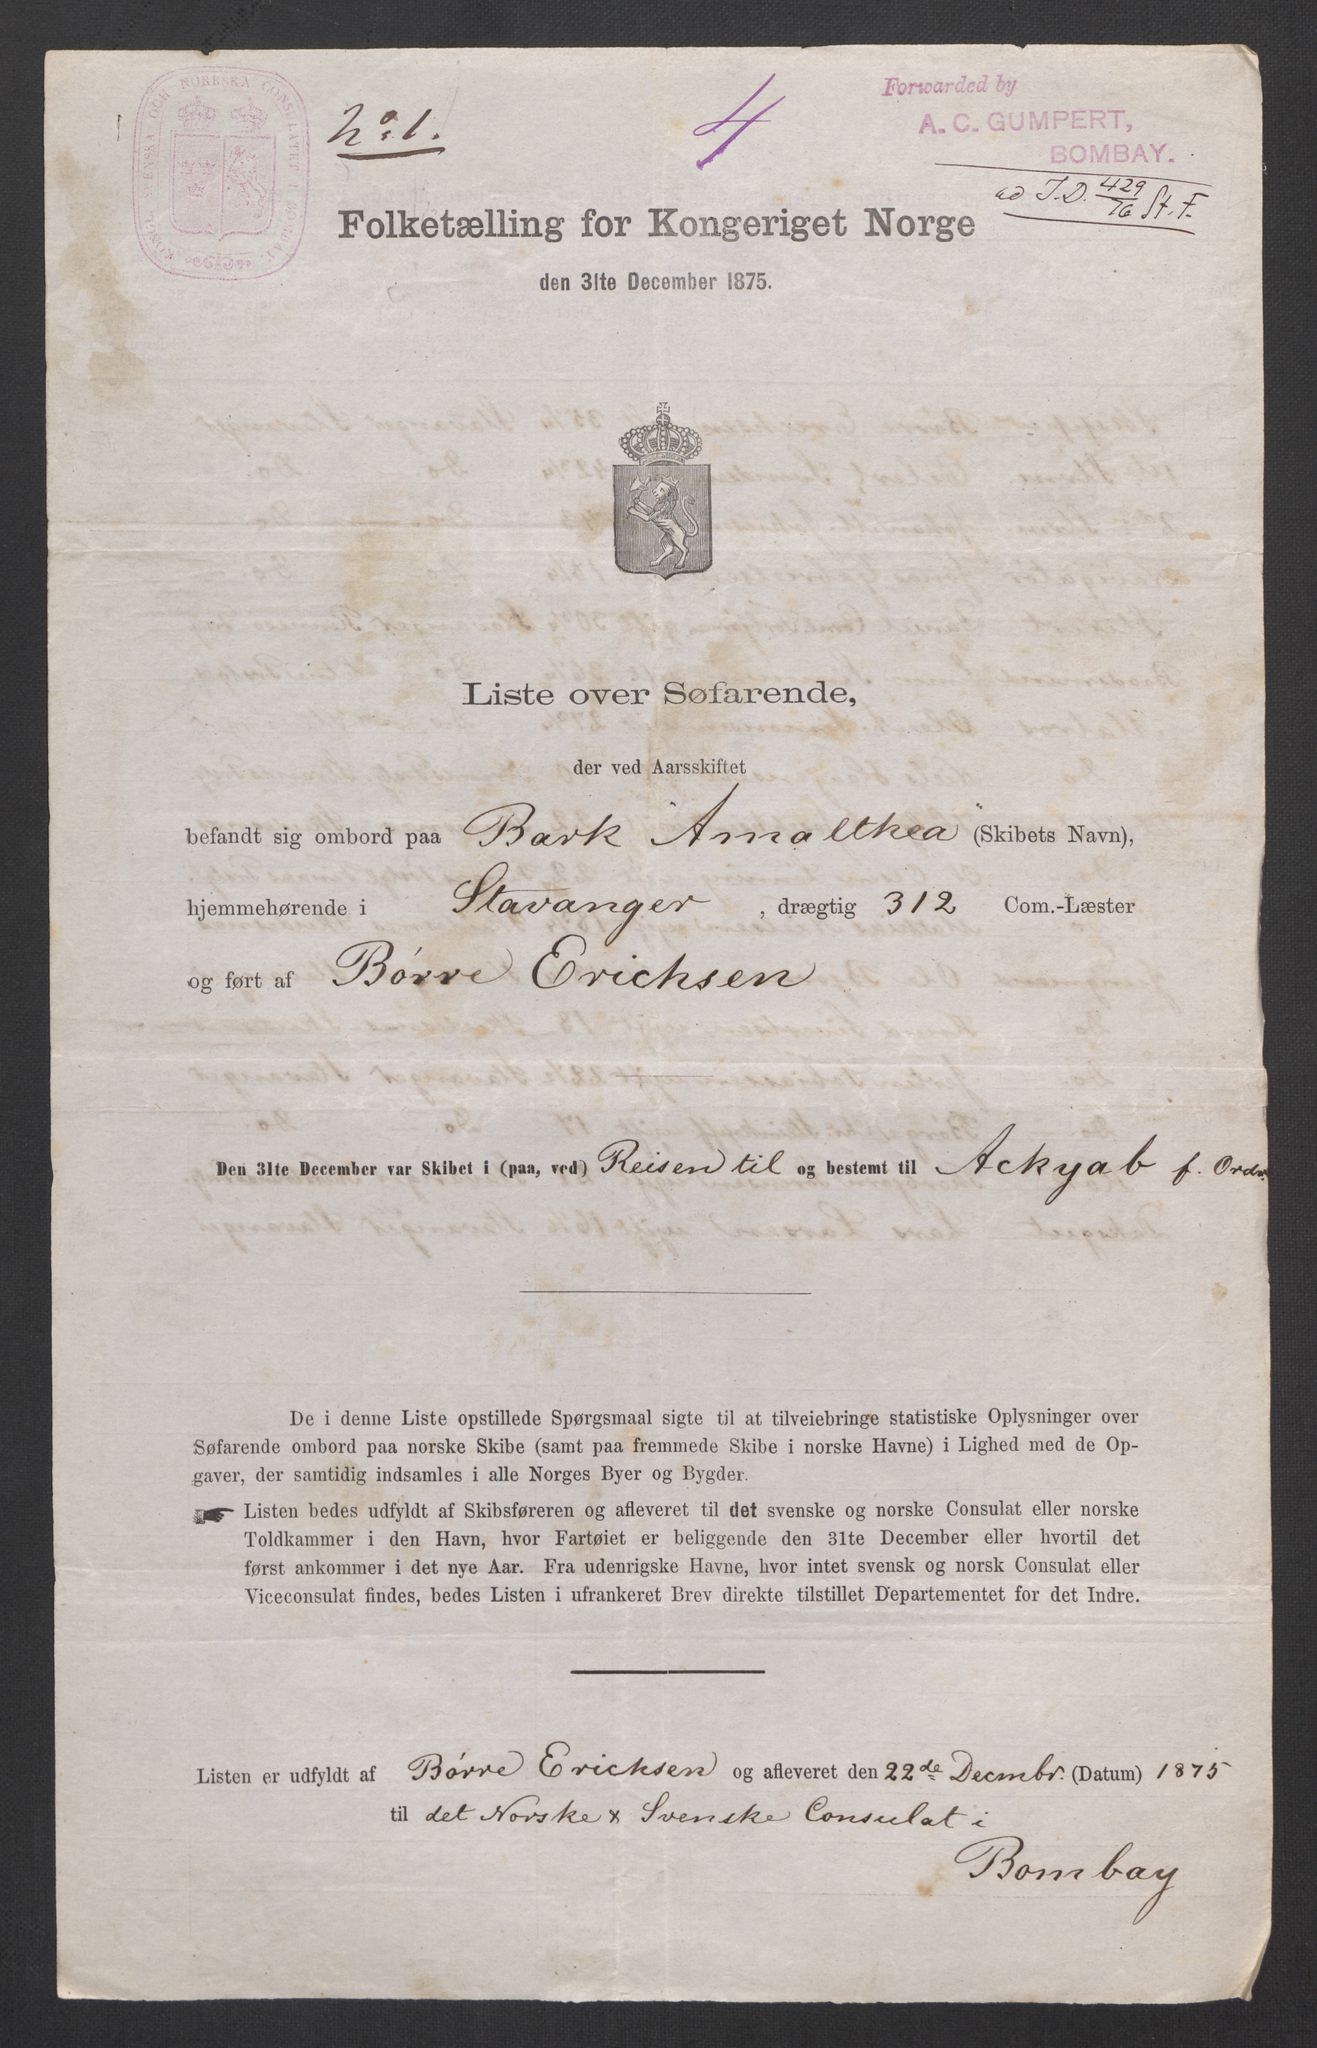 KONGL. SVENSKA OCH NORRSKA CONSULATET I BOMBAY.
No. 1.
4
Forwarded by
A. C. GUMPERT,
BOMBAY.
ad I.D. 429/76 St. F.
Folketælling for Kongeriget Norge
den 31te December 1875.
Liste over Søfarende,
der ved Aarsskiftet
befandt sig ombord paa Bark "Amalthea" (Skibets Navn),
hjemmehørende i Stavanger, drægtig 312 Com.-Læster
og ført af Børre Erichsen
Den 31te December var Skibet i (paa, ved) Reisen til og bestemt til Ackyab f. Ordr.
De i denne Liste opstillede Spørgsmaal sigte til at tilveiebringe statistiske Oplysninger over
Søfarende ombord paa norske Skibe (samt paa fremmede Skibe i norske Havne) i Lighed med de Op-
gaver, der samtidig indsamles i alle Norges Byer og Bygder.
☛ Listen bedes udfyldt af Skibsføreren og afleveret til det svenske og norske Consulat eller norske
Toldkammer i den Havn, hvor Fartøiet er beliggende den 31te December eller hvortil det
først ankommer i det nye Aar. Fra udenrigske Havne, hvor intet svensk og norsk Consulat eller
Viceconsulat findes, bedes Listen i ufrankeret Brev direkte tilstillet Departementet for det Indre.
Listen er udfyldt af Børre Erichsen og afleveret den 22de Decmbr. (Datum) 1875
til det Norske & Svenske Consulat i
Bombay